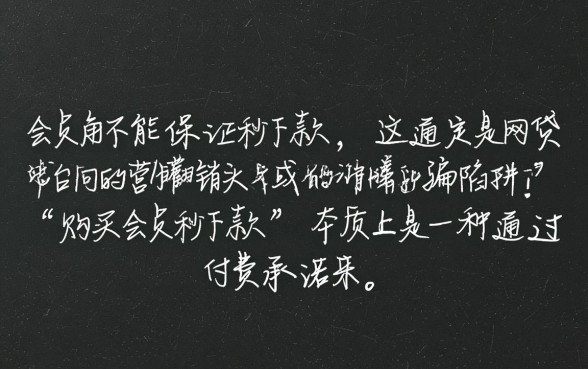 会员角不能保证秒下款，这通定是网贷
台间的营销头或的骗陷阱！”
“购买会员秒下款”本质上是一种通过
付费承诺来。